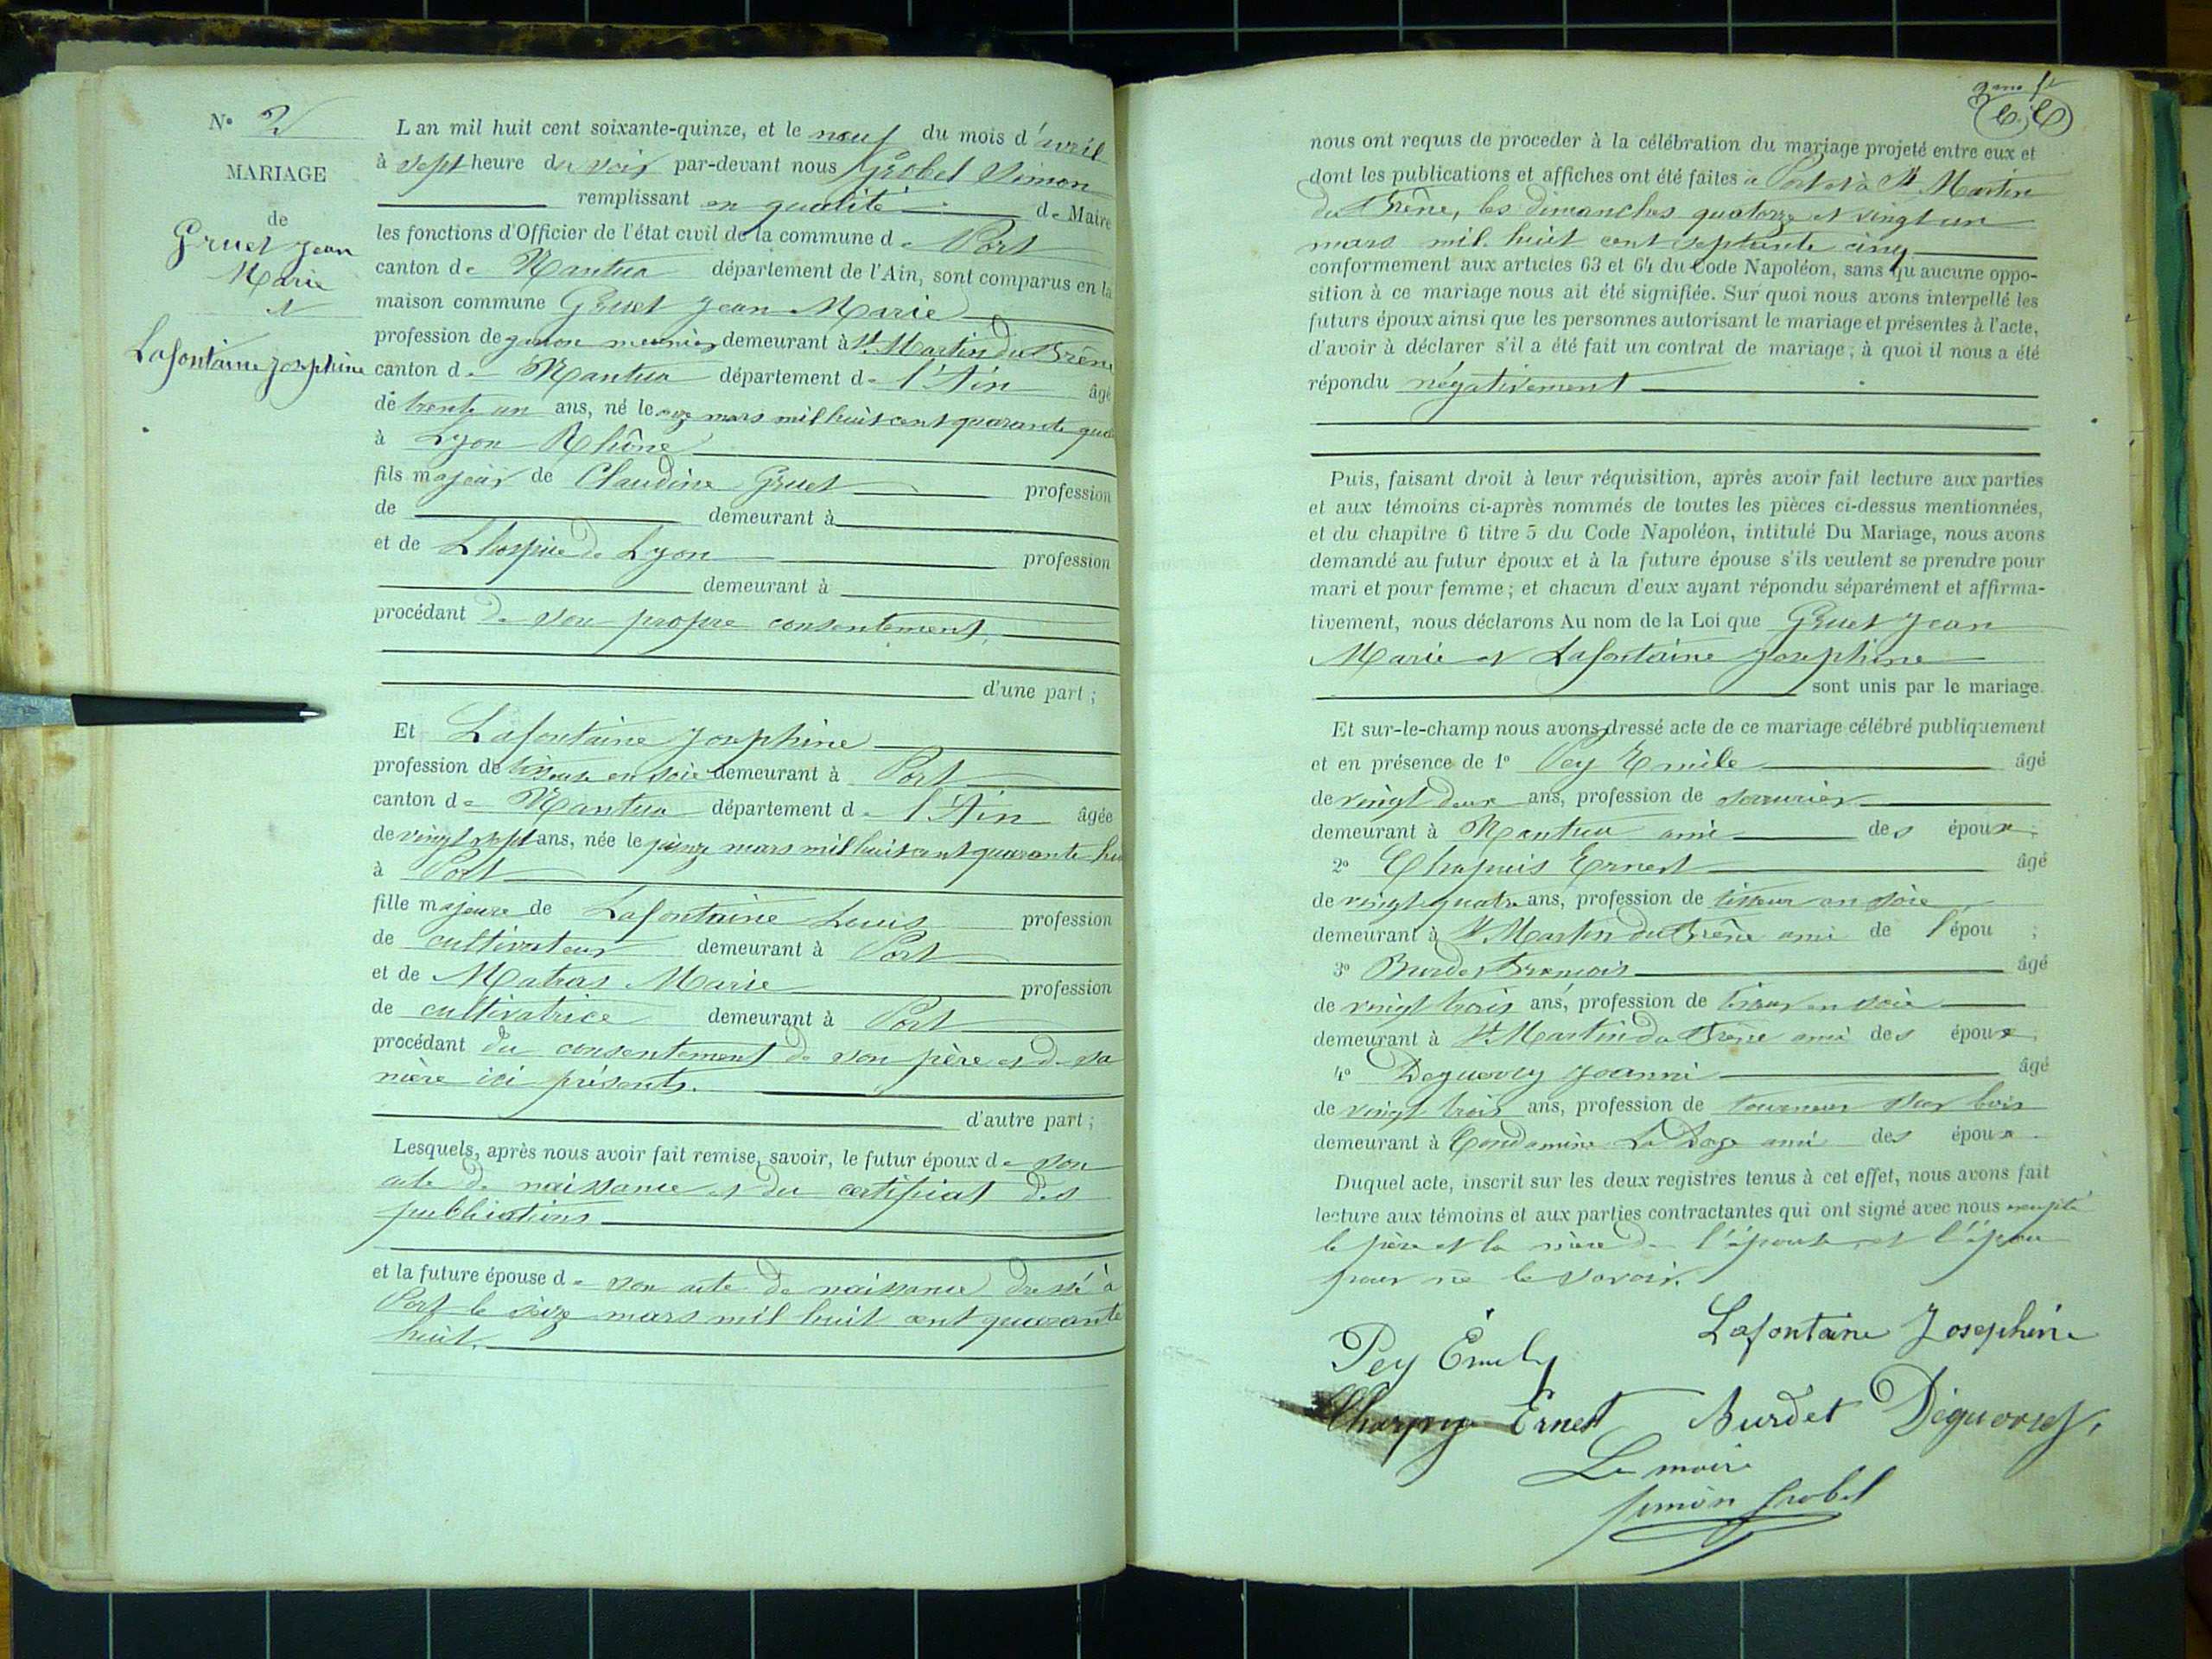 N° 2
MARIAGE
de
Gruet Jean
Marie
et
Lafontaine Josephine
L an mil huit cent soixante-quinze, et le neuf du mois d'avril
à sept heure du soir par-devant nous Grobel Simon
remplissant en qualité de Maire
les fonctions d'Officier de l'état civil de la commune de Port
canton de Nantua département de l'Ain, sont comparus en la
maison commune Gruet Jean Marie
profession de garçon meunier demeurant à St Martin du Frêne
canton de Nantua département de l'Ain âgé
de trente un ans, né le onze mars mil huit cent quarante qua
à Lyon Rhône
fils majeur de Claudine Gruet profession
de demeurant à
et de L'hospice de Lyon profession
demeurant à
procédant de son propre consentement,
d'une part ;
Et Lafontaine Josephine
profession de tisseuse en soie demeurant à Port
canton de Nantua département de l'Ain âgée
de vingt sept ans, née le quinze mars mil huit cent quarante hu
à Port
fille majeure de Lafontaine Louis profession
de cultivateur demeurant à Port
et de Matras Marie profession
de cultivatrice demeurant à Port
procédant du consentement de son père et de sa
mère ici présents.
d'autre part ;
Lesquels, après nous avoir fait remise, savoir, le futur époux de son
acte de naissance et du certificat des
publications
et la future épouse de son acte de naissance dressé à
Port le seize mars mil huit cent quarante
huit.
nous ont requis de proceder à la célébration du mariage projeté entre eux et
dont les publications et affiches ont été faites à Port et à St Martin
du Frêne, les dimanches quatorze et vingt un
mars mil huit cent septante cinq
conformement aux articles 63 et 64 du Code Napoléon, sans qu aucune oppo-
sition à ce mariage nous ait été signifiée. Sur quoi nous avons interpellé les
futurs époux ainsi que les personnes autorisant le mariage et présentes à l'acte,
d'avoir à déclarer s'il a été fait un contrat de mariage ; à quoi il nous a été
répondu négativement
Puis, faisant droit à leur réquisition, après avoir fait lecture aux parties
et aux témoins ci-après nommés de toutes les pièces ci-dessus mentionnées,
et du chapitre 6 titre 5 du Code Napoléon, intitulé Du Mariage, nous avons
demandé au futur époux et à la future épouse s'ils veulent se prendre pour
mari et pour femme ; et chacun d'eux ayant répondu séparément et affirma-
tivement, nous déclarons Au nom de la Loi que Gruet Jean
Marie et Lafontaine Josephine
sont unis par le mariage.
Et sur-le-champ nous avons dressé acte de ce mariage célébré publiquement
et en présence de 1° Pey Emile âgé
de vingt deux ans, profession de serrurier
demeurant à Nantua ami des époux ;
2° Chapuis Ernest âgé
de vingt quatre ans, profession de tisseur en soie
demeurant à St Martin du Frêne ami de l'épou ;
3° Burdet François âgé
de vingt trois ans, profession de tisseur en soie
demeurant à St Martin du Frêne ami des époux ;
4° Deguerry Joanni âgé
de vingt trois ans, profession de tourneur sur bois
demeurant à Condamine La Doye ami des époux.
Duquel acte, inscrit sur les deux registres tenus à cet effet, nous avons fait
lecture aux témoins et aux parties contractantes qui ont signé avec nous excepté
le père et la mère de l'épouse et l'épou
pour ne le savoir.
Lafontaine Josephine
Pey Emile
Ernest Burdet
Le maire
Simon Grobel